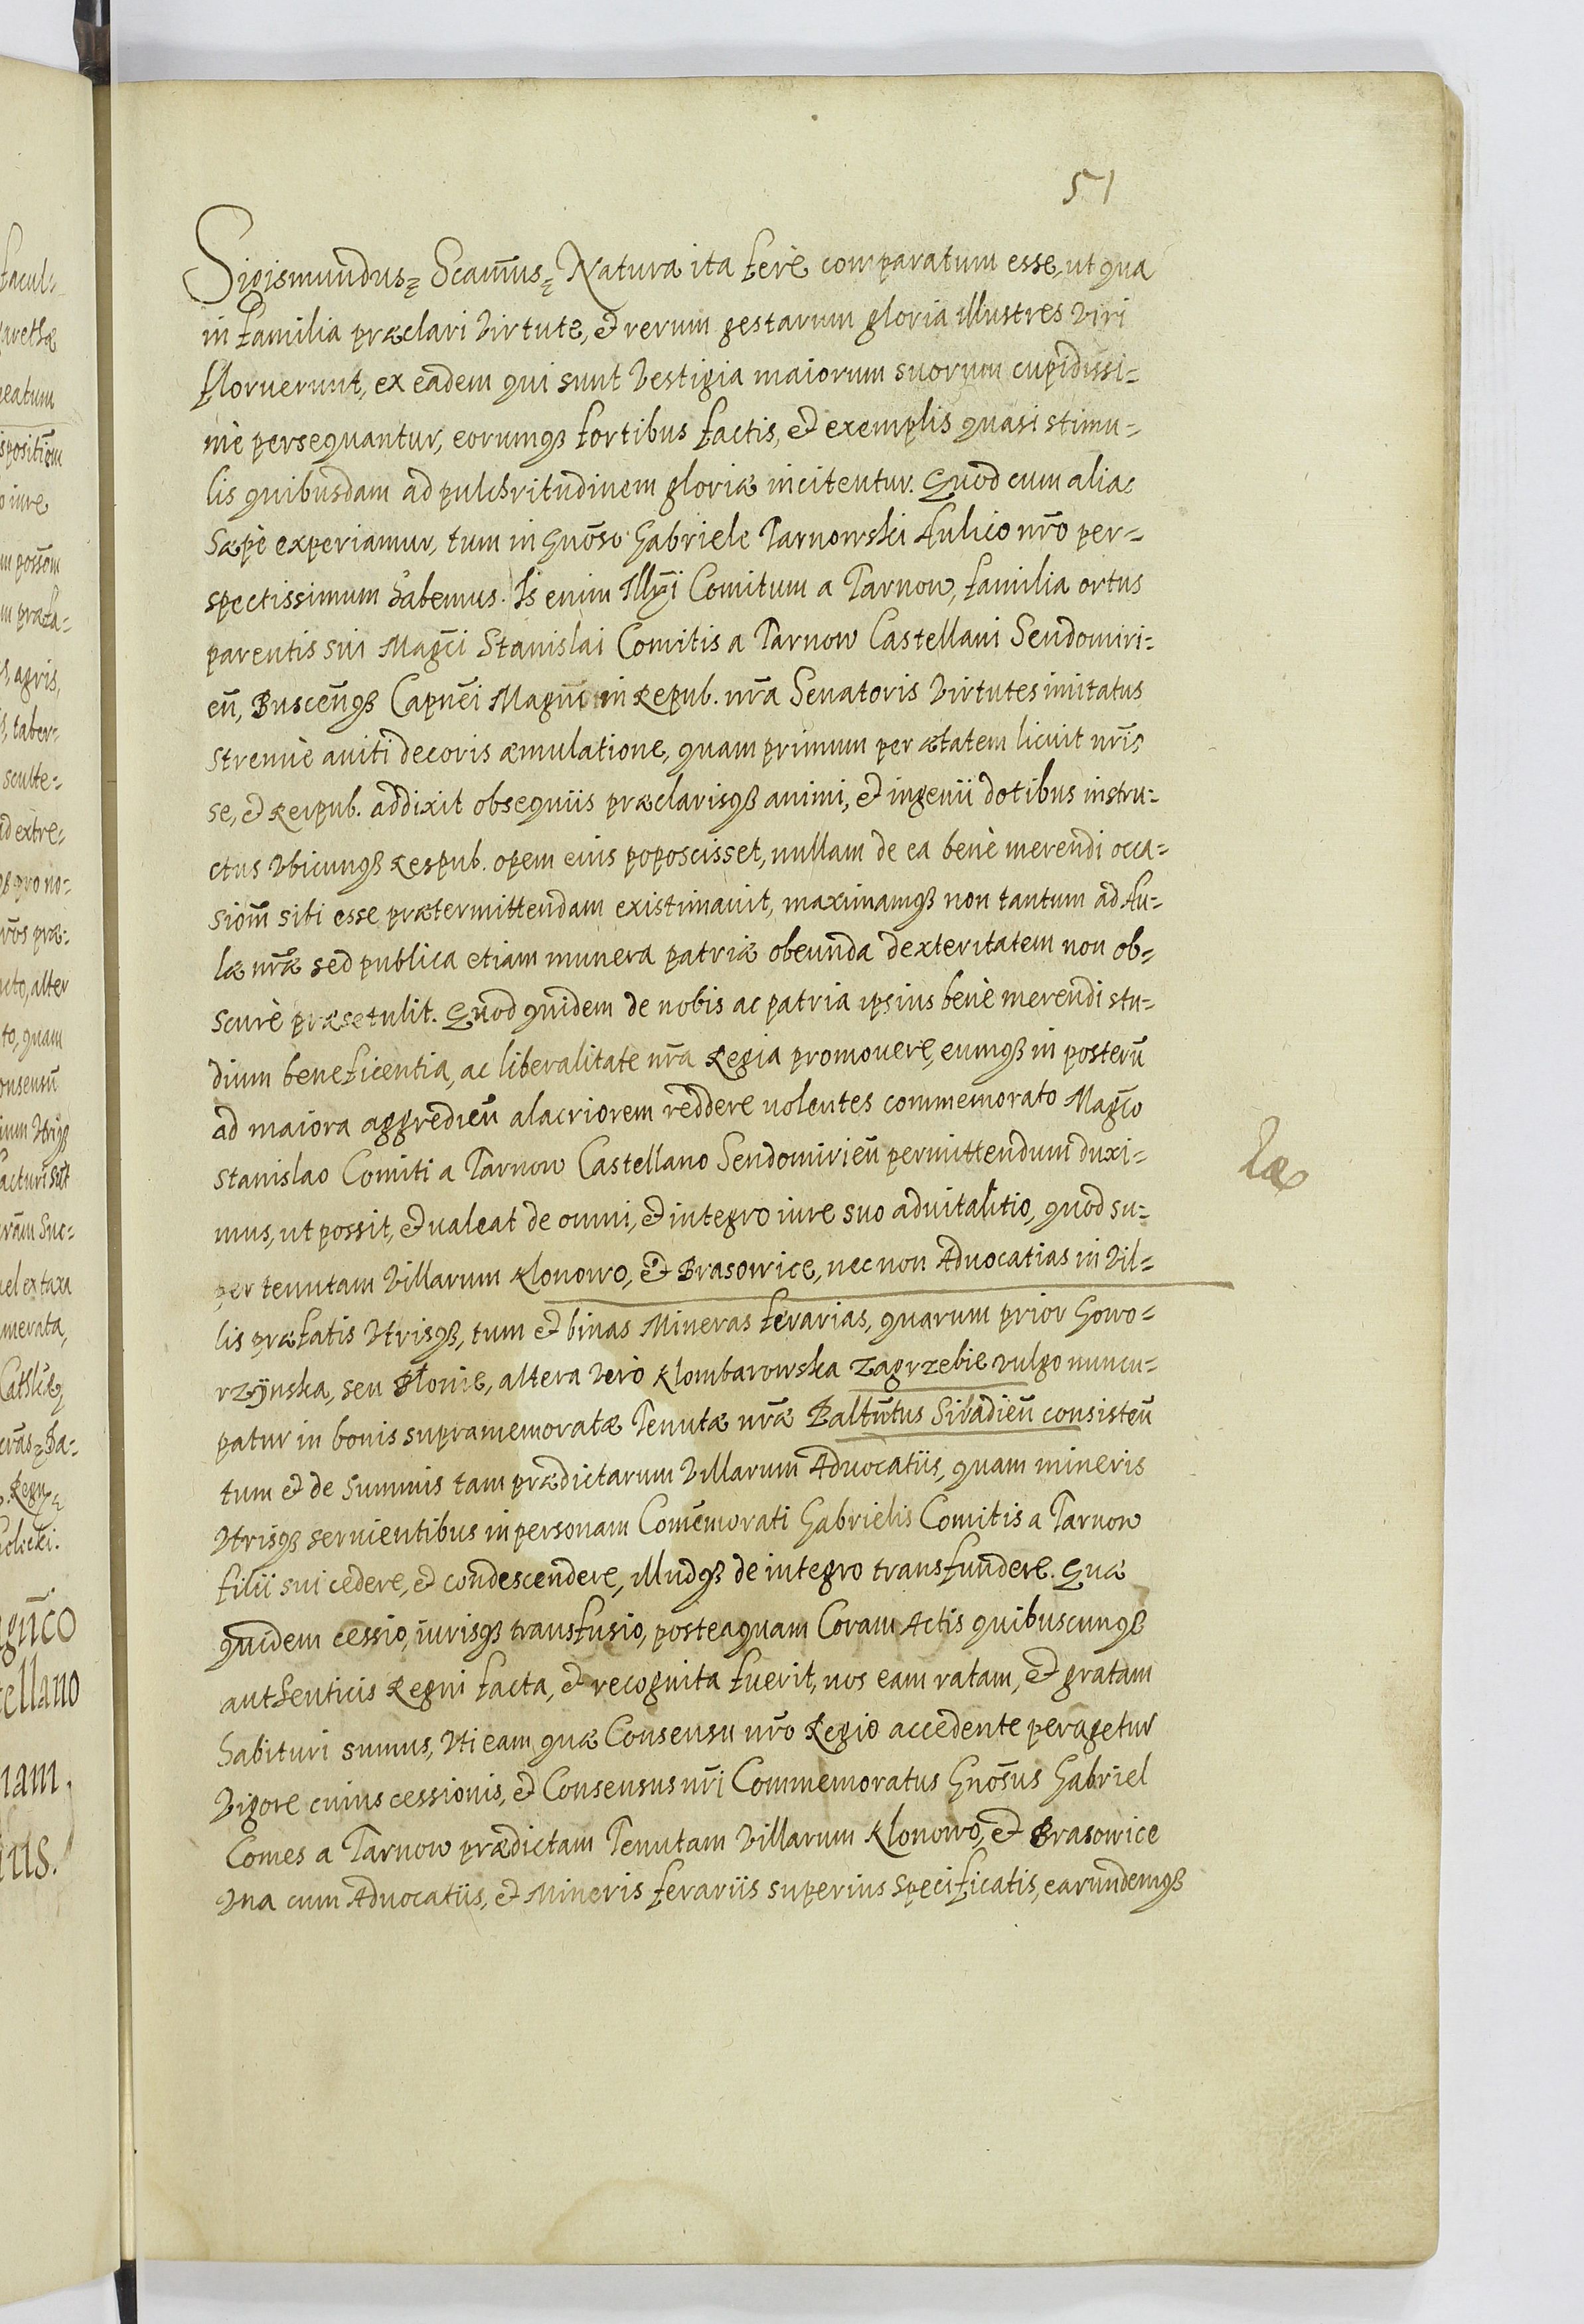 51
Sigismundus etc. Scam̃us etc. Natura ita ferè comparatum esse, ut qua
in familia præclari virtute, et rerum gestarum gloria illustres viri
floruerunt, ex eadem qui sunt vestigia maiorum suorum cupidissi=
mè persequantur, eorumq3 fortibus factis, et exemplis quasi stimu=
lis quibusdam ad pulchritudinem gloriæ incitentur. Quod cum alias
sæpè experiamur, tum in Gnõso Gabriele Tarnowski Aulico nr̃o per=
spectissimum habemus. Is enim Illr̃i Comitum a Tarnow, familia ortus
parentis sui Magc̃i Stanislai Comitis a Tarnow Castellani Sendomiri=
eñ, Busceñq3 Capnẽi Magni in Repub. nr̃a Senatoris virtutes imitatus
strenuè auiti decoris æmulatione, quam primum per ætatem licuit nr̃is
se, et Reipub. addixit obsequiis præclarisq3 animi, et ingenii dotibus instru=
ctus vbicunq3 Respub. opem eius poposcisset, nullam de ea benè merendi occa=
siom̃ sibi esse prætermittendam existimauit, maximamq3 non tantum ad Au=
læ nr̃æ sed publica etiam munera patriæ obeunda dexteritatem non ob=
scurè præsetulit. Quod quidem de nobis ac patria ipsius benè merendi stu=
dium beneficentia, ac liberalitate nr̃a Regia promouere, eumq3 in posterũ
ad maiora aggredieñ alacriorem reddere uolentes commemorato Magc̃o
Stanislao Comiti a Tarnow Castellano Sendomirieñ permittendum duxi=
mus, ut possit, et ualeat de omni, et integro iure suo aduitalitio, quod su=
per tenutam villarum Klonowo, et Brasowice, nec non Aduocatias in vil=
lis præfatis vtrisq3, tum et binas Mineras ferarias, quarum prior Gowo=
rzÿnska, seu Słonie, altera verò Klombarowska Zagrzebie vulgo nuncu=
patur in bonis supramemoratæ Tenutæ nr̃æ Palt̃ntus Siradieñ consisteñ
tum et de summis tam prædictarum villarum Aduocatiis, quam mineris
vtrisq3 seruientibus in personam Com̃emorati Gabrielis Comitis a Tarnow
filii sui cedere, et condescendere, illudq3 de integro transfundere. Quæ
quidem cessio, iurisq3 transfusio, posteaquam Coram Actis quibuscunq3
authenticis Regni facta, et recognita fuerit, nos eam ratam, et gratam
habituri sumus, vti eam quæ Consensu nr̃o Regio accedente peragetur
vigore cuius cessionis, et Consensus nr̃i Commemoratus Gnõsus Gabriel
Comes a Tarnow prædictam Tenutam villarum Klonowo, et Brasowice
vna cum Aduocatiis, et Mineris ferariis superius specificatis, earundemq3